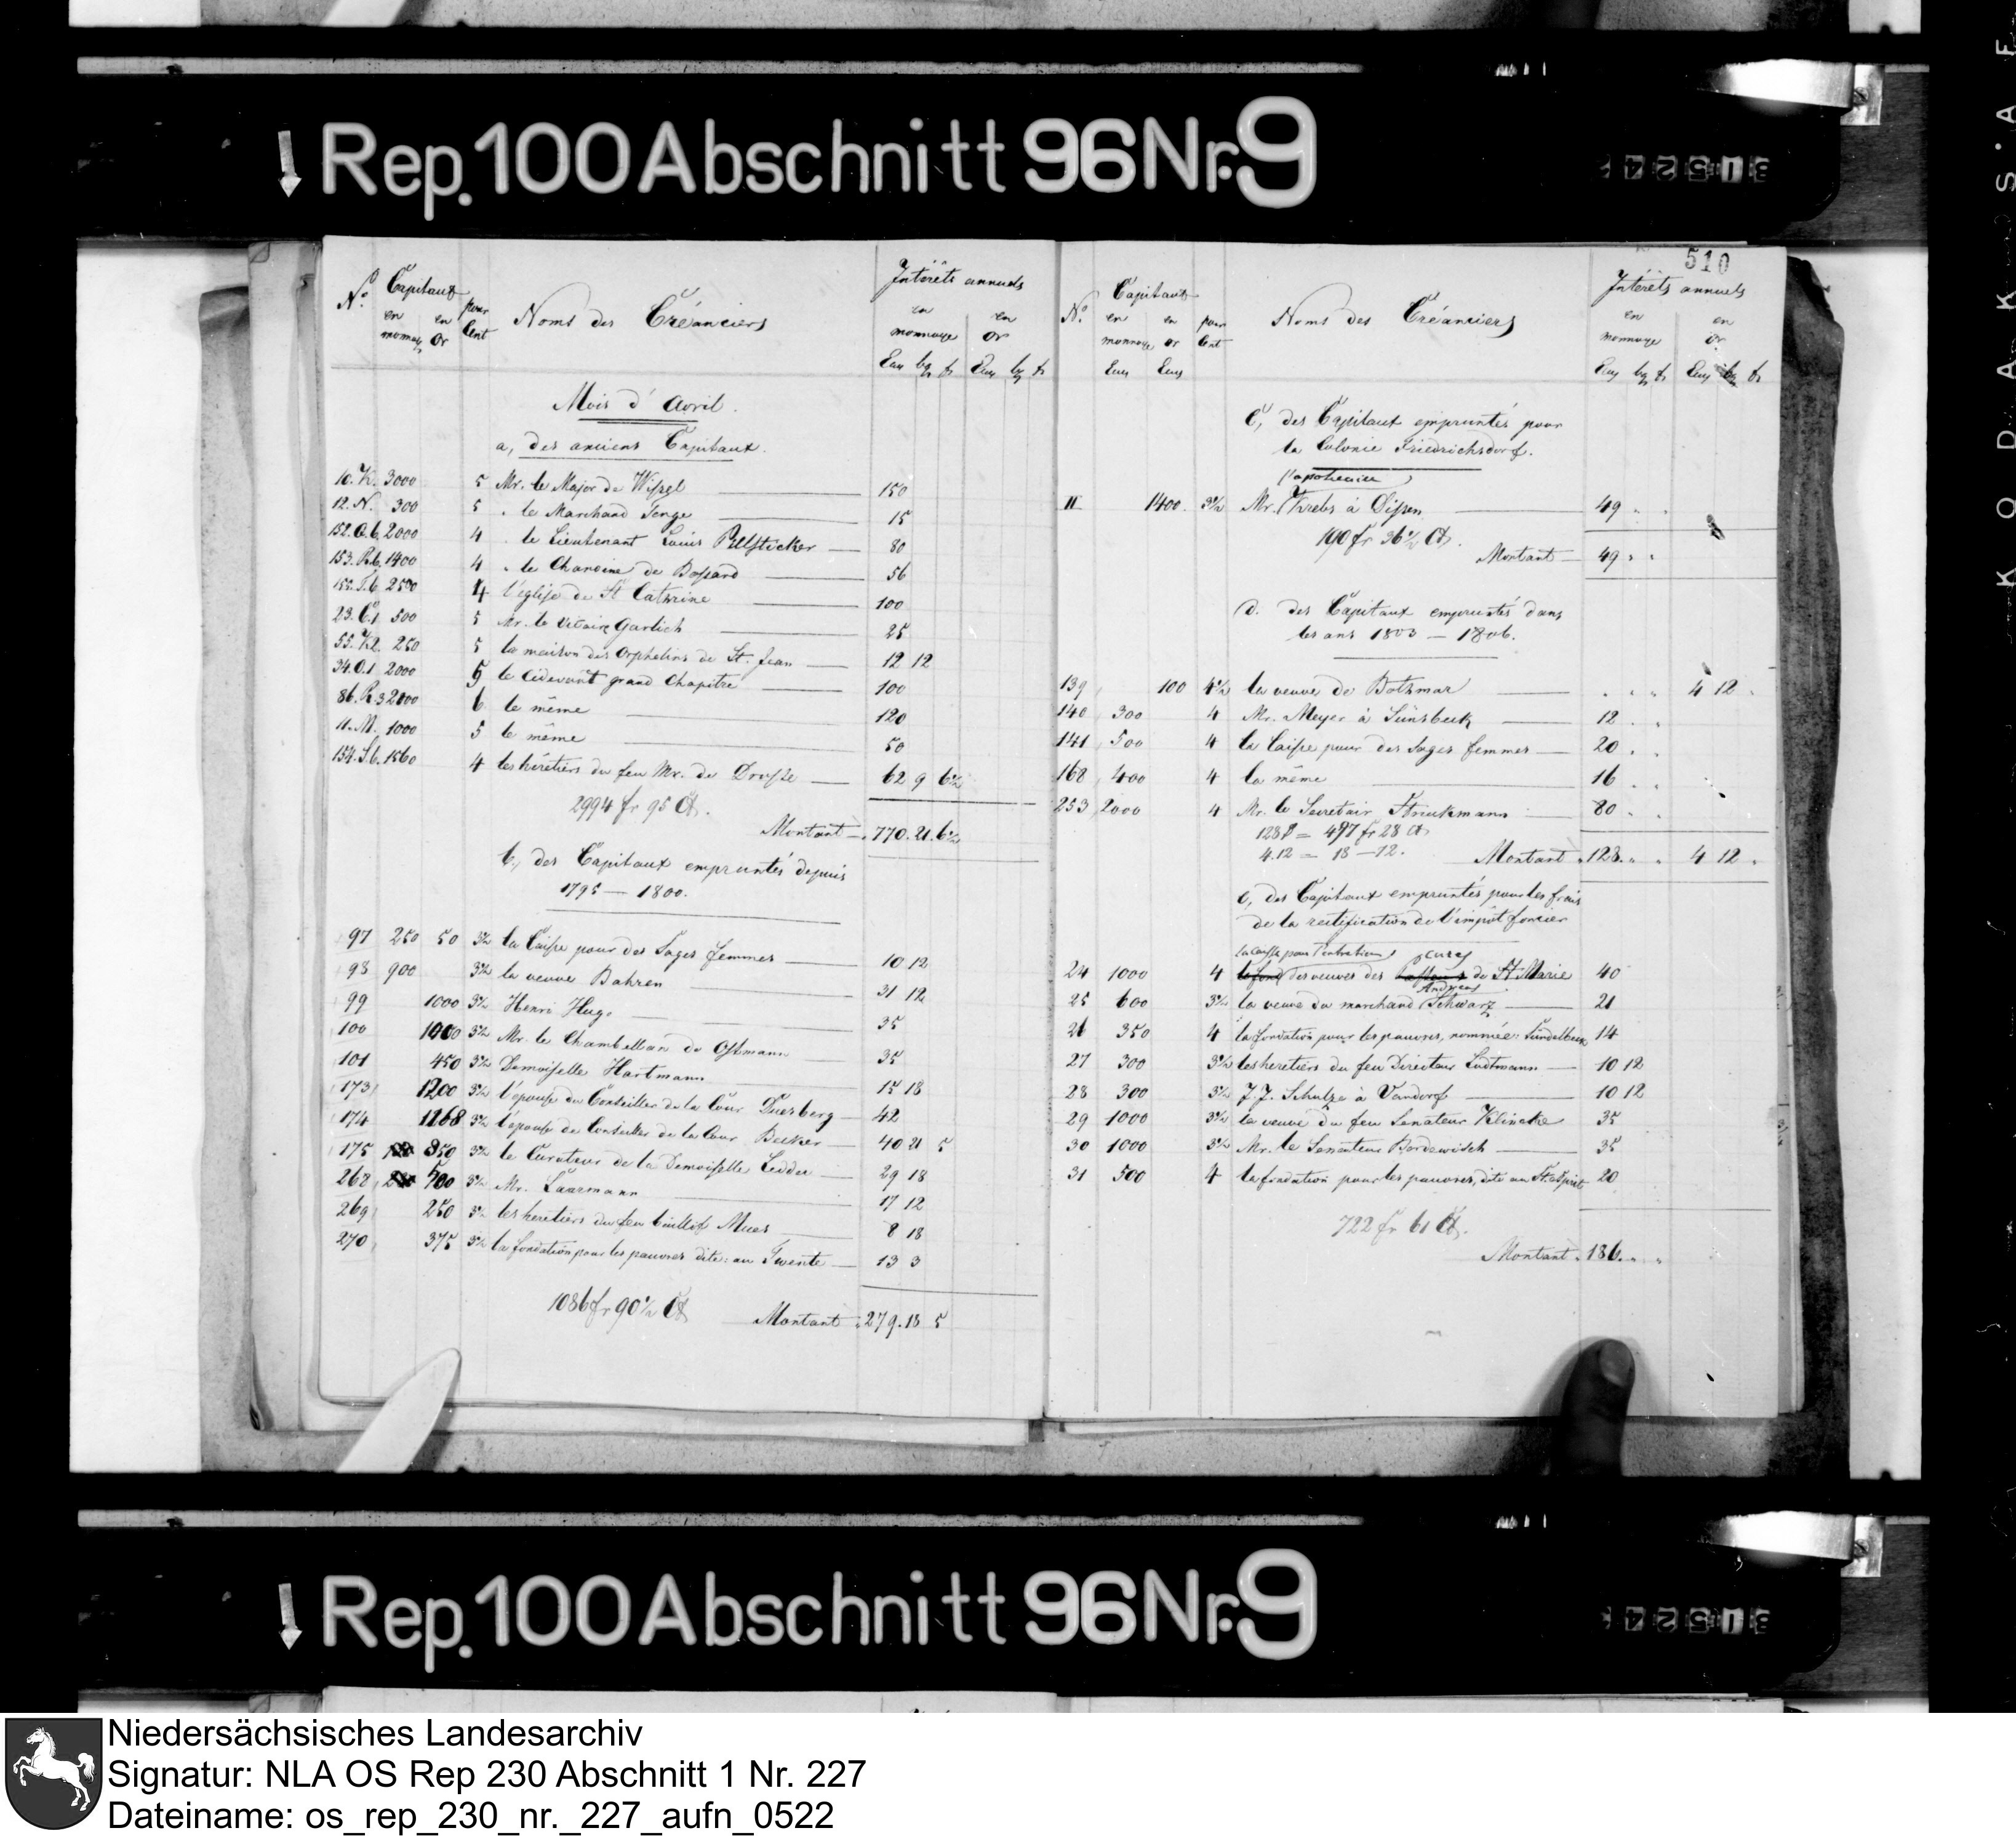 Rep. 100 Abschnitt 96 Nr. 9
31524
KODAK S.A.F
510
No. Capitaux en monnaye en or pour Cent Noms des Créanciers Intérêts annuels en monnaye en or
Ecus bg fr Ecus bg fr
Mois d'Avril.
a, des anciens Capitaux.
10. K. 3000 5 Mr. le Major de Wissel 150
12. N. 300 5 " le Marchand Tenge 15
152. Q.6. 2000 4 " le Lieutenant Louis 80
153. R.6. 1400 4 " le Chanoine de Bossard 56
2500 4 l'église de St. Catherine 100
23. C.1 500 5 Mr. le vicaire Garlich 25
55. K2. 250 5 la maison des Orphelins de St. Jean 12 12
34. O.1 2000 5 le cidevant grand Chapitre 100
86. R.3 2000 6 le même 120
11. M. 1000 5 le même 50
154. S.6. 1560 4 les héretiers du feu Mr. de 62 9 6½
2994 fr 95 Ct.
Montant 770. 21. 6½
b, des Capitaux empruntés depuis
1795 — 1800.
97 250 50 3½ la Caisse pour des Sages femmes 10 12
98 900 3½ la veuve Bahren 31 12
99 1000 3½ Henri Hugo 35
100 1000 3½ Mr. le Chambellan de Ostmann 35
101 450 3½ Demoiselle Hartmann 15 18
173 1200 3½ l'épouse du Conseiller de la Cour Duesberg 42
174 1168 3½ l'épouse du Conseiller de la Cour Becker 40 21 5
175 850 3½ le Curateur de la Demoiselle 29 18
268 500 3½ Mr. Laarmann 17 12
269 250 3½ les heretiers du feu Mues 8 18
270 375 3½ la fondation pour les pauvres dite: au Twente 13 3
1086 fr 90½ Ct
Montant 279. 18 5
No. Capitaux en monnaye en or pour Cent Noms des Créanciers Intérêts annuels en monnaye en or
Ecus Ecus Ecus bg fr Ecus bg fr
C, des Capitaux empruntés pour
la Colonie Friedrichsdorf.
l'apothecaire
II 1400. 3½ Mr. Krebs à Dissen 49 " "
190 fr 36½ Ct.
Montant 49 " "
d. des Capitaux empruntés dans
les ans 1803 — 1806.
139 100 4½ la veuve de Bothmar " " " 4 12 "
140 300 4 Mr. Meyer à Sünsbeck 12 " "
141 500 4 la Caisse pour des Sages femmes 20 " "
168 400 4 la même 16 " "
253 2000 4 Mr. le Secretair Struckmann 80 " "
128 = 497 fr 28 Ct
4.12 = 18 — 72.
Montant 128. " " 4 12 "
e, des Capitaux empruntés pour les frais
de la rectification de l'impôt foncier
la caisse pour l'entretien curés
24 1000 4 des veuves des de St. Marie 40
Andreas
25 600 3½ la veuve du marchand Schwarz 21
26 350 4 la fondation pour les pauvres, nommée: Sündelbeck 14
27 300 3½ les heretiers du feu Directeur Lodtmann 10 12
28 300 3½ J. J. Schulze à Vandorf 10 12
29 1000 3½ la veuve du feu Senateur Klincke 35
30 1000 3½ Mr. le Senateur Bordewisch 35
31 500 4 la fondation pour les pauvres, dite au St. esprit 20
722 fr 61 Ct.
Montant 186. " "
Rep. 100 Abschnitt 96 Nr. 9
31524
Niedersächsisches Landesarchiv
Signatur: NLA OS Rep 230 Abschnitt 1 Nr. 227
Dateiname: os_rep_230_nr._227_aufn_0522